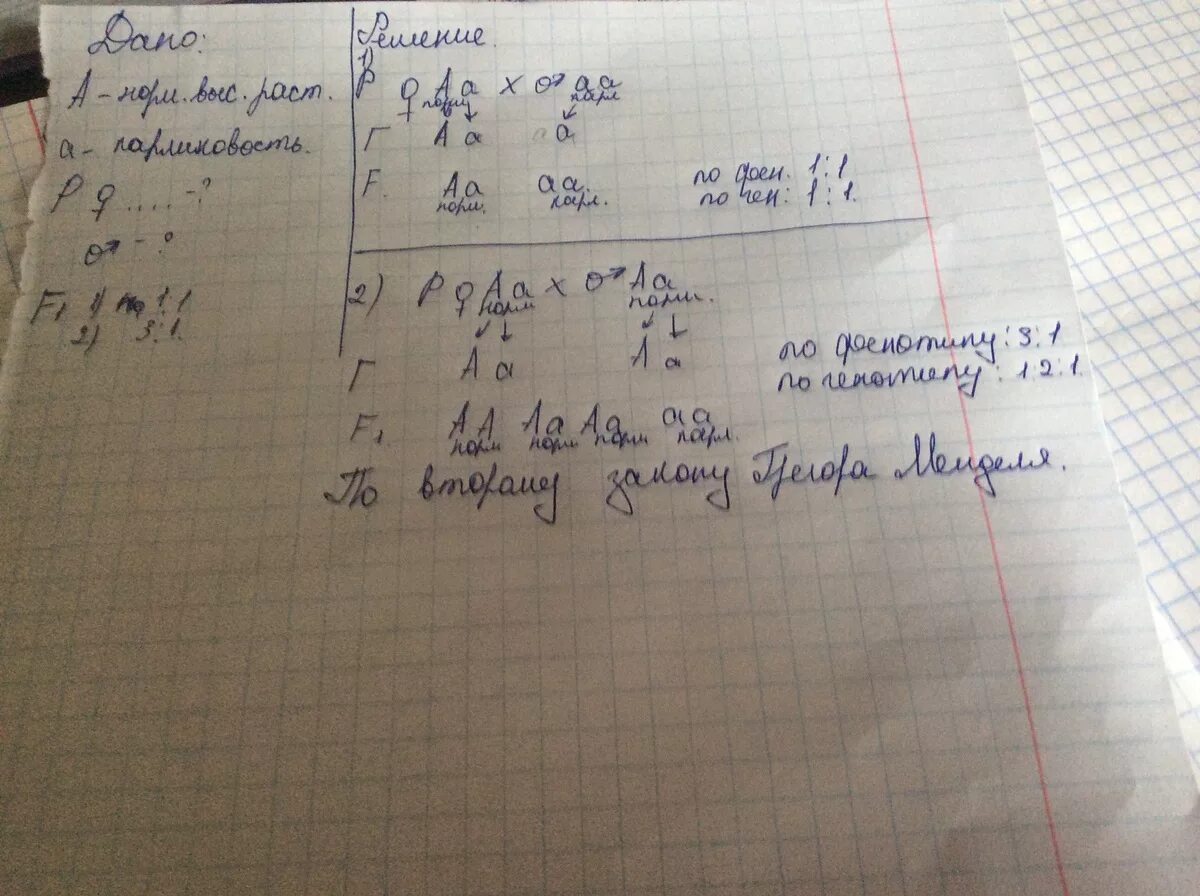 Дано:
А - норм. выс. раст.
а - карликовость.
Р ♀ .... -?
♂ - ?
F₁ 1) 1:1
2) 3:1.
Решение.
1)
Р ♀ Аа х ♂ аа
норм карл
Г А а а
F. Аа аа.
норм. карл.
по фен. 1:1
по ген: 1:1.
2) Р ♀ Аа х ♂ Аа
норм норм.
Г А а А а
по фенотипу: 3:1
по генотипу: 1:2:1.
F₁. АА Аа Аа аа
норм норм норм карл.
По второму закону Грегора Менделя.